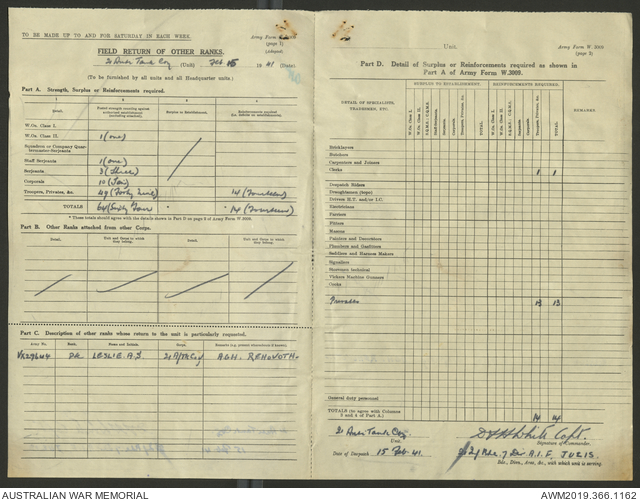 TO BE MADE UP TO AND FOR SATURDAY IN EACH WEEK.
Army Form W. 3009
(page 1)
(Adapted)
FIELD RETURN OF OTHER RANKS.
(Unit) Feb 15 1941 (Date)
(To be furnished by all units and all Headquarter units.)
Part A. Strength, Surplus or Reinforcements required.
1 2 3 4
Detail. Posted strength counting against authorized establishment (excluding attached). Surplus to Establishment. Reinforcements required (for deficits on establishment).
W.Os. Class I.
W.Os. Class II. 1 (one)
Squadron or Company Quartermaster-Serjeants
Staff Serjeants 1 (one)
Serjeants 3 (Three)
Corporals 10 (Ten)
Troopers, Privates, &c. 49 (Forty nine) 14 (Fourteen)
TOTALS 64 (Sixty Four * * 14 (Fourteen)
* These totals should agree with the details shown in Part D on page 2 of Army Form W.3009.
Part B. Other Ranks attached from other Corps.
Detail. Unit and Corps to which they belong. Detail. Unit and Corps to which they belong.
Part C. Description of other ranks whose return to the unit is particularly requested.
Army No. Rank. Name and Initials. Corps. Remarks (e.g. present whereabouts if known).
LESLIE. A.J. AGH. REHOVOTH.
Unit.
Army Form W. 3009
(page 2)
Part D. Detail of Surplus or Reinforcements required as shown in
Part A of Army Form W.3009.
DETAIL OF SPECIALISTS, TRADESMEN, ETC.
SURPLUS TO ESTABLISHMENT. REINFORCEMENTS REQUIRED.
W.Os. Class I. W.Os. Class II. S.Q.M.S.; C.Q.M.S. Staff-Serjeants Serjeants Corporals Troopers, Privates, &c. TOTAL W.Os. Class I. W.Os. Class II. S.Q.M.S.; C.Q.M.S. Serjeants Corporals Troopers, Privates, &c. TOTAL
REMARKS.
Bricklayers
Butchers
Carpenters and Joiners
Clerks 1 1
Despatch Riders
Draughtsmen (topo)
Drivers H.T. and/or I.C.
Electricians
Farriers
Fitters
Masons
Painters and Decorators
Plumbers and Gasfitters
Saddlers and Harness Makers
Signallers
Storemen technical
Vickers Machine Gunners
Cooks
Privates 13 13
General duty personnel
TOTALS (to agree with Columns 3 and 4 of Part A.) 14 14
Unit.
Capt.
Signature of Commander.
Date of Despatch 15 Feb 41.
7 Div A.I.F. JULIS.
Bde., Divn., Area, &c., with which unit is serving.
AUSTRALIAN WAR MEMORIAL
AWM2019.366.1162